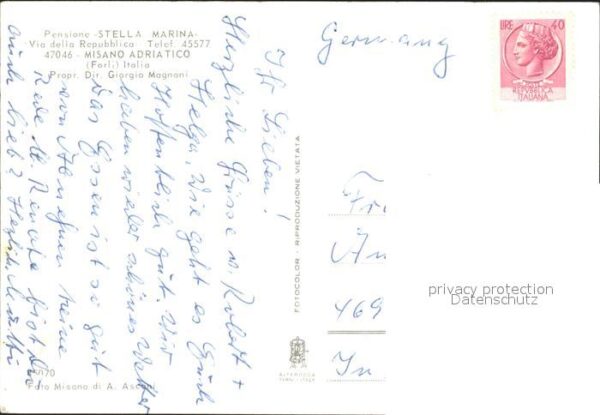 Pensione -STELLA MARINA-
Via della Repubblica Telef. 45577
47046 - MISANO ADRIATICO
(Forlì) Italia
Propr. Dir. Giorgio Magnani
Ihr Lieben!
Herzliche Grüsse v. Robert +
Helga. Wie geht es Euch
Hoffentlich gut. Wir
haben wieder schönes Wetter
Das Essen ist so gut
von Abnehmen keine
Rede M. Renate bist du
auch lieb? Herzlichst
V/170
Foto Misano di A. Asconi
FOTOCOLOR - RIPRODUZIONE VIETATA
Germany
LIRE 40
POSTE
REPUBBLICA
ITALIANA
Fr
An
469
In
privacy protection
Datenschutz